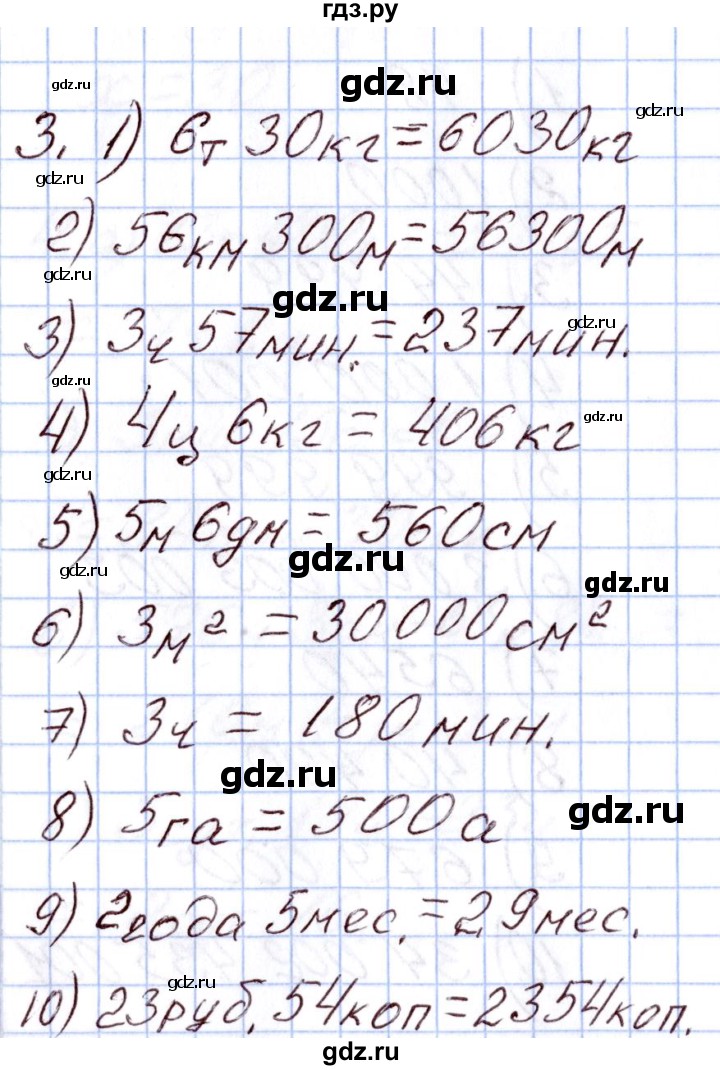 гдз.ру
gdz.ru
gdz.ru
gdz.ru
3. 1) 6т 30кг = 6030кг
gdz.ru
2) 56км 300м = 56300м
gdz.ru
gdz.ru
3) 3ч 57мин. = 237мин.
gdz.ru
gdz.ru
4) 4ц 6кг = 406кг
gdz.ru
gdz.ru
5) 5м 6дм = 560см
gdz.ru
gdz.ru
gdz.ru
6) 3м² = 30000см²
7) 3ч = 180мин.
gdz.ru
8) 5га = 500а
gdz.ru
9) 2года 5мес. = 29мес.
gdz.ru
10) 23руб. 54коп = 2354коп.
gdz.ru